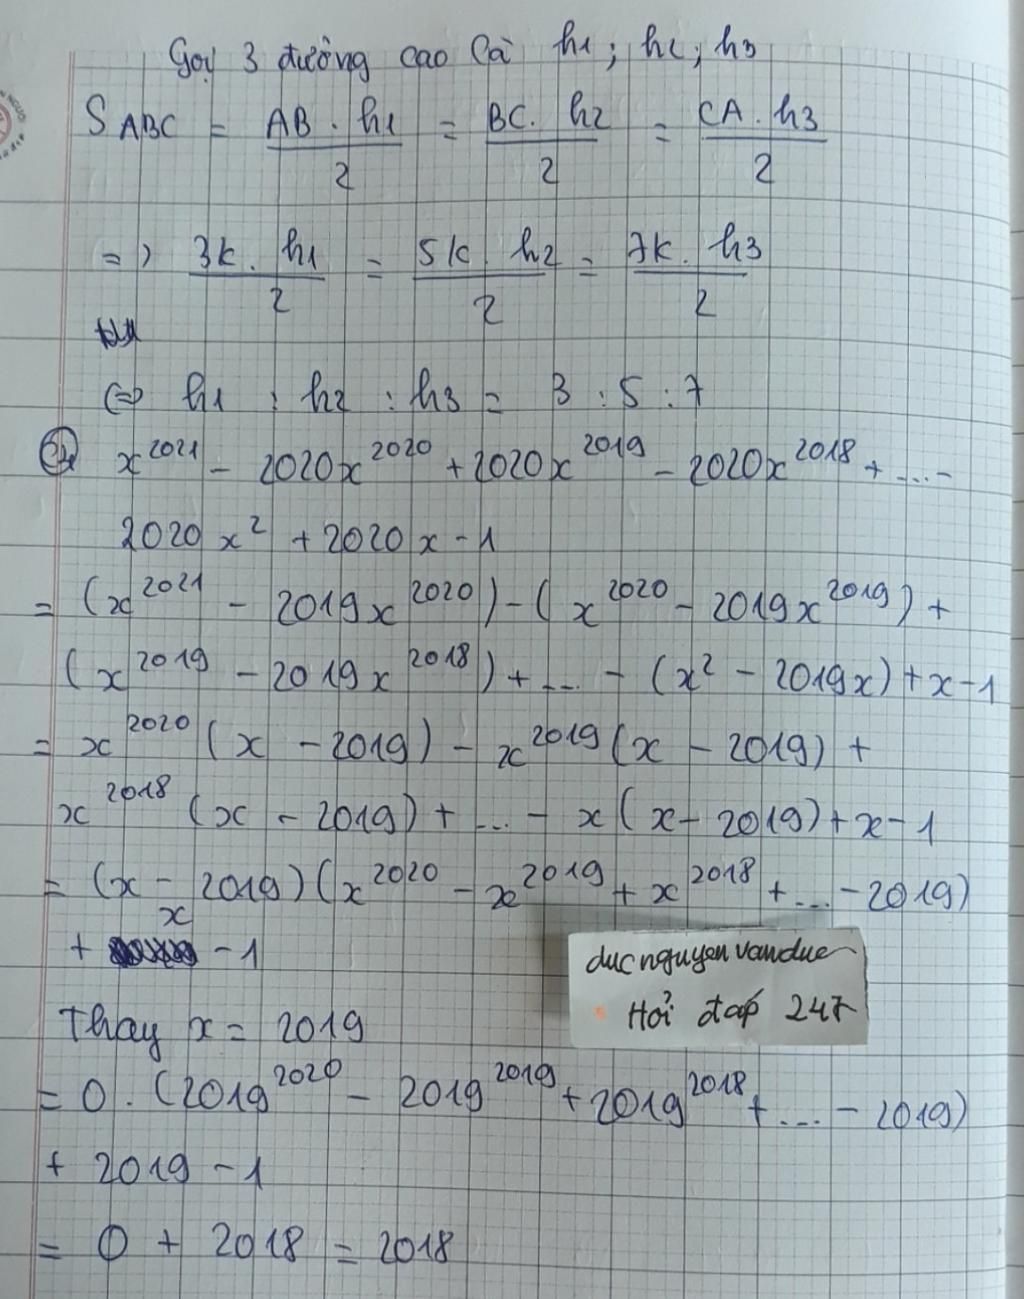 Gọi 3 đường cao là h1 ; h2 ; h3
S ABC = AB . h1 / 2 = BC . h2 / 2 = CA . h3 / 2
=> 3k . h1 / 2 = 5k . h2 / 2 = 7k . h3 / 2
<=> h1 : h2 : h3 = 3 : 5 : 7
x^2021 - 2020x^2020 + 2020x^2019 - 2020x^2018 + ... -
2020x^2 + 2020x - 1
= (x^2021 - 2019x^2020) - (x^2020 - 2019x^2019) +
(x^2019 - 2019x^2018) + ... - (x^2 - 2019x) + x - 1
= x^2020 (x - 2019) - x^2019 (x - 2019) +
x^2018 (x - 2019) + ... - x (x - 2019) + x - 1
= (x - 2019)(x^2020 - x^2019 + x^2018 + ... - 2019)
+ x - 1
ducnguyenvanduc
Hỏi đáp 247
Thay x = 2019
= 0 . (2019^2020 - 2019^2019 + 2019^2018 + ... - 2019)
+ 2019 - 1
= 0 + 2018 = 2018